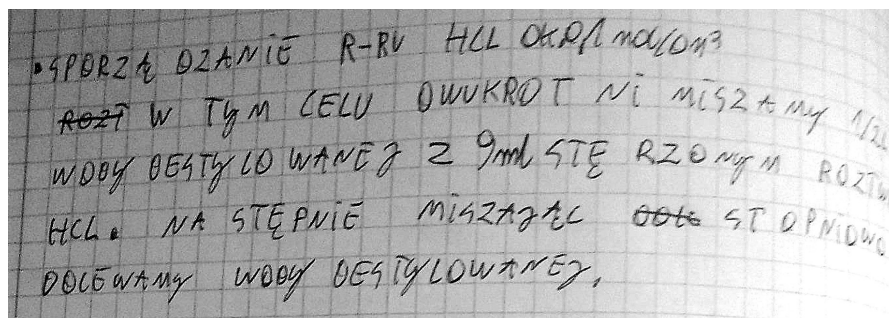 • SPORZĄDZANIE R-RU HCL OK 0,1 mol/Dm³
W TYM CELU DWUKROTNi MiSZAMY 1/2L
WODY DESTYLOWANEJ Z 9ml STĘRZONYM ROZTW
HCL. NASTĘPNiE MiSZAJĄC STOPNiOWO
DOLEWAMY WODY DESTYLOWANEJ.